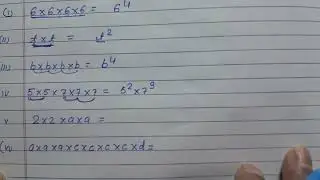 (i) 6×6×6×6 = 6⁴
(ii) t×t = t²
(iii) b×b×b×b = b⁴
iv 5×5×7×7×7 = 5²×7⁹
v 2×2×a×a =
(vi a×a×a×c×c×c×c×d=